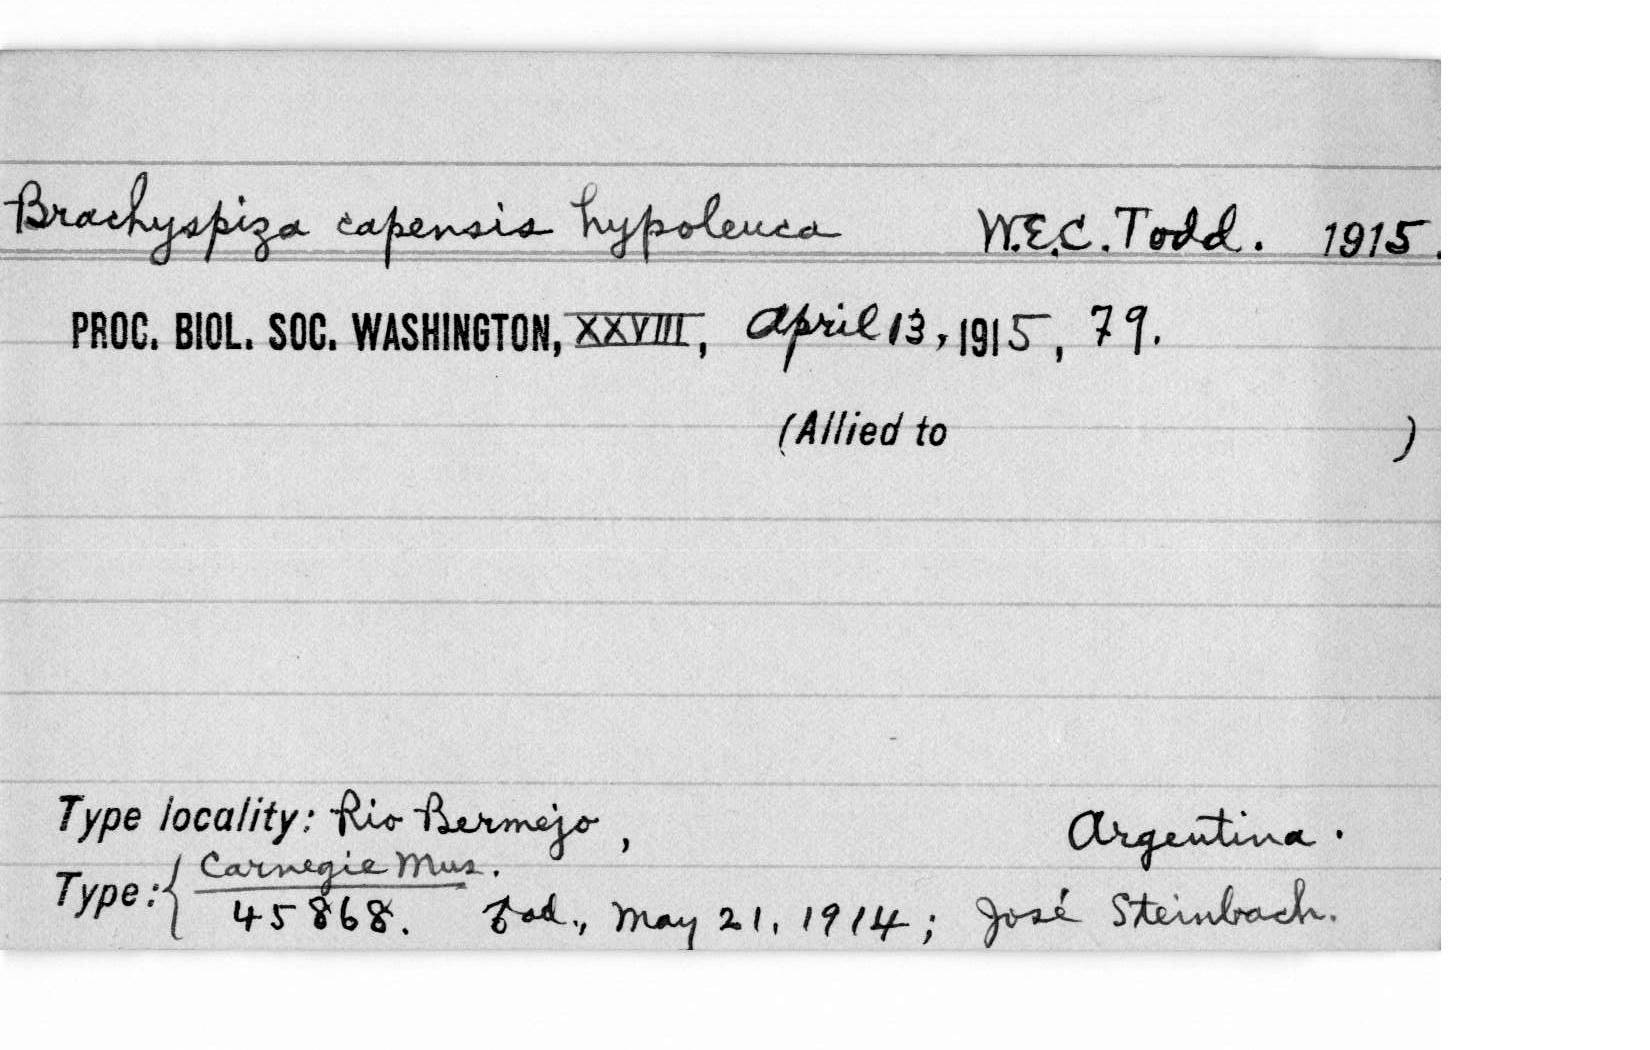 Brachyspiza capensis hypoleuca W.E.C. Todd. 1915.
PROC. BIOL. SOC. WASHINGTON, XXVIII, April 13, 1915, 79.
(Allied to )
Type locality: Rio Bermejo, Argentina.
Type: { Carnegie Mus.
45868. ad., May 21, 1914; José Steinbach.